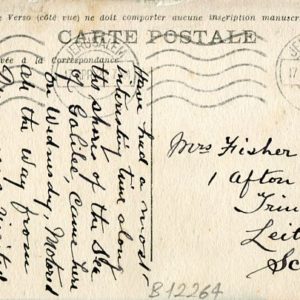 e Verso (côté vue) ne doit comporter aucune inscription manuscr
CARTE POSTALE
vée à la Correspondance
JERUSALEM
Have had a most
interesting time along
the shores of the Sea
of Galilee, came here
on Wednesday, Motored
all the way from
Mrs Fisher
1 Afton
Trin
Leit
Sc
B12264